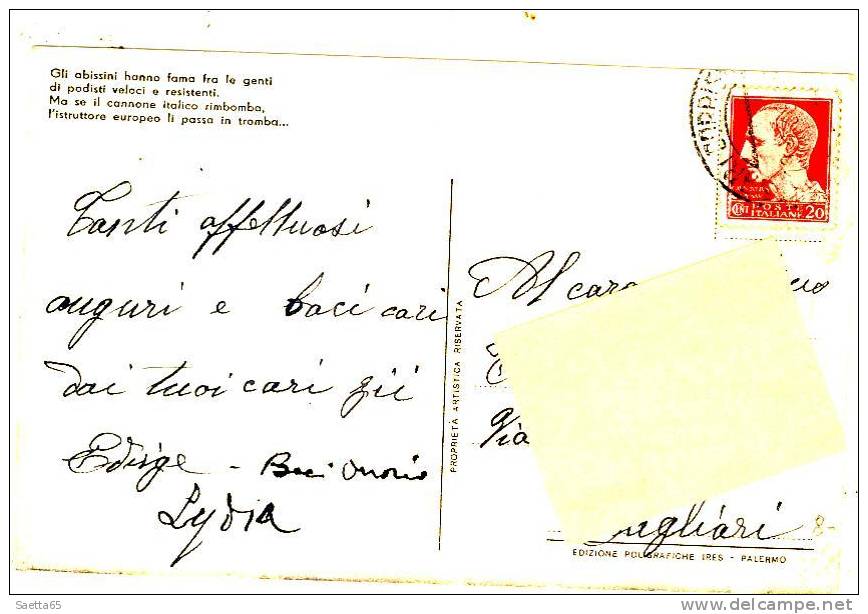 Gli abissini hanno fama fra le genti
di podisti veloci e resistenti.
Ma se il cannone italico rimbomba,
l'istruttore europeo li passa in tromba...
Tanti affettuosi
auguri e baci cari
dai tuoi cari zii
Edvige - Baci Onorio
Lydia
PROPRIETÀ ARTISTICA RISERVATA
CENT POSTE ITALIANE 20
Al caro
Via
EDIZIONE POLIGRAFICHE IRES - PALERMO
8-
Saetta65
delcampe.net